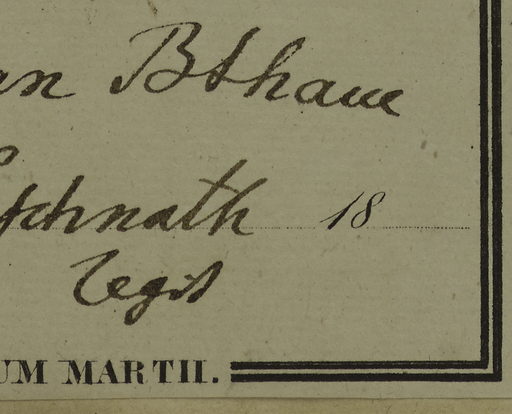 an Bthaue
schnath 18
legit
UM MARTII.